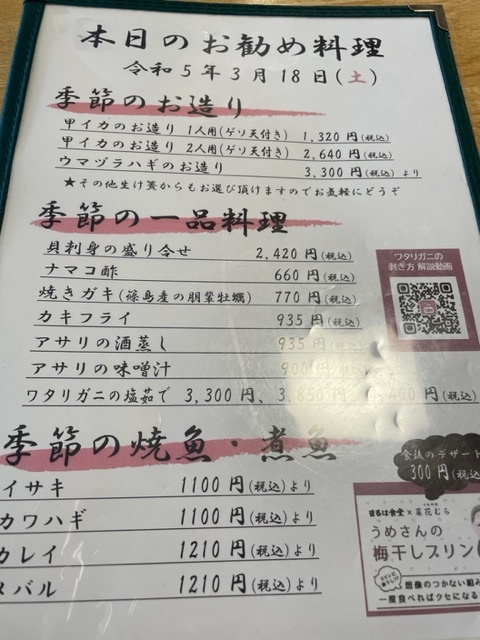 本日のお勧め料理
令和5年3月18日(土)
季節のお造り
甲イカのお造り 1人用(ゲソ天付き) 1,320円(税込)
甲イカのお造り 2人用(ゲソ天付き) 2,640円(税込)
ウマヅラハギのお造り 3,300円(税込)より
★その他生け簀からもお選び頂けますのでお気軽にどうぞ
季節の一品料理
貝刺身の盛り合せ 2,420円(税込)
ナマコ酢 660円(税込)
焼きガキ(篠島産の朋輩牡蠣) 770円(税込)
カキフライ 935円(税込)
アサリの酒蒸し 935円(税込)
アサリの味噌汁 900円(税込)
ワタリガニの塩茹で 3,300円、3,850円、4,400円(税込)
ワタリガニの
剥き方 解説動画
季節の焼魚・煮魚
イサキ 1100円(税込)より
カワハギ 1100円(税込)より
カレイ 1210円(税込)より
メバル 1210円(税込)より
食後のデザート
300円(税込
まるは食堂×菜花むら
うめさんの
梅干しプリン
想像のつかない組み
一度食べればクセになる